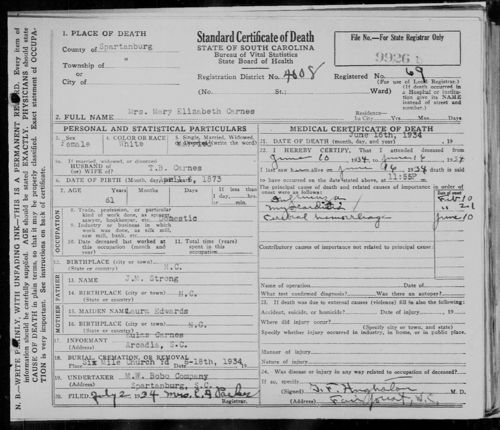 1. PLACE OF DEATH
County of Spartanburg
Township of "
or
City of
Standard Certificate of Death
STATE OF SOUTH CAROLINA
Bureau of Vital Statistics
State Board of Health
Registration District No. 4008
(No. St.; Ward)
File No.—For State Registrar Only
9926
Registered No. 69
(For use of Local Registrar.)
(If death occurred in a Hospital or institution give its NAME instead of street and number.)
2. FULL NAME Mrs. Mary Elizabeth Carnes
Residence—
In City Yrs. Mos. Days
PERSONAL AND STATISTICAL PARTICULARS
3. Sex Female
4. COLOR OR RACE White
5. Single, Married, Widowed, or Divorced (write the word) married
5a. If married, widowed, or divorced
HUSBAND of
(or) WIFE of T.B. Carnes
6. DATE OF BIRTH (month, day, and year) April 6, 1873
7. AGE Years 61 Months Days If less than 1 day, hrs. min.
OCCUPATION
8. Trade, profession, or particular kind of work done, as spinner, sawyer, bookkeeper, etc. Domestic
9. Industry or business in which work was done, as silk mill, saw mill, bank, etc.
10. Date deceased last worked at this occupation (month and year)
11. Total time (years) spent in this occupation
12. BIRTHPLACE (city or town) N.C.
(State or country)
FATHER
13. NAME J.M. Strong
14. BIRTHPLACE (city or town) N.C.
(State or country)
MOTHER
15. MAIDEN NAME Laura Edwards
16. BIRTHPLACE (city or town) N.C.
(State or country)
17. INFORMANT Buins Carnes
(Address) Arcadia, S.C.
18. BURIAL, CREMATION, OR REMOVAL
Place Six Mile Church Yd 6-18th, 1934
19. UNDERTAKER M.W. Bobo Company
(Address) Spartanburg, S.C.
20. FILED July 2 1934 Mrs. E. A. Parker
Registrar.
MEDICAL CERTIFICATE OF DEATH
June 16th, 1934
21. DATE OF DEATH (month, day, and year) , 19
22. I HEREBY CERTIFY, That I attended deceased from
June 10 1934, to June 16 1934
I last saw h alive on June 16 1934 death is said
to have occurred on the date stated above, at 11:55P m.
The principal cause of death and related causes of importance in order of onset were as follows:
Date of onset
Feb 10
Myocarditis
Cerebral hemorrhage June 10
Contributory causes of importance not related to principal cause:
Name of operation Date of
What test confirmed diagnosis? Was there an autopsy?
23. If death was due to external causes (violence) fill in also the following:
Accident, suicide, or homicide? Date of injury , 19
Where did injury occur?
(Specify city or town, and state)
Specify whether injury occurred in industry, in home, or in public place.
Manner of injury
Nature of injury
24. Was disease or injury in any way related to occupation of deceased?
If so, specify
(Signed) M. D.
(Address) Fair Forest, S.C.